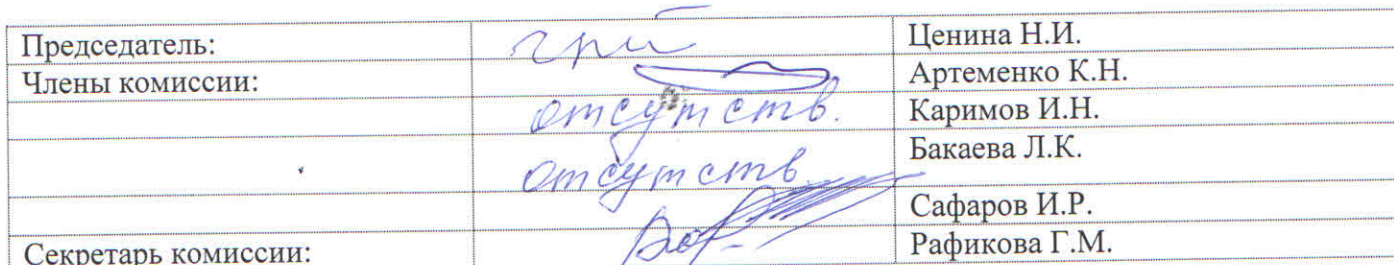 Председатель: Ценина Н.И.
Члены комиссии: Артеменко К.Н.
отсутств. Каримов И.Н.
отсутств Бакаева Л.К.
Сафаров И.Р.
Секретарь комиссии: Рафикова Г.М.